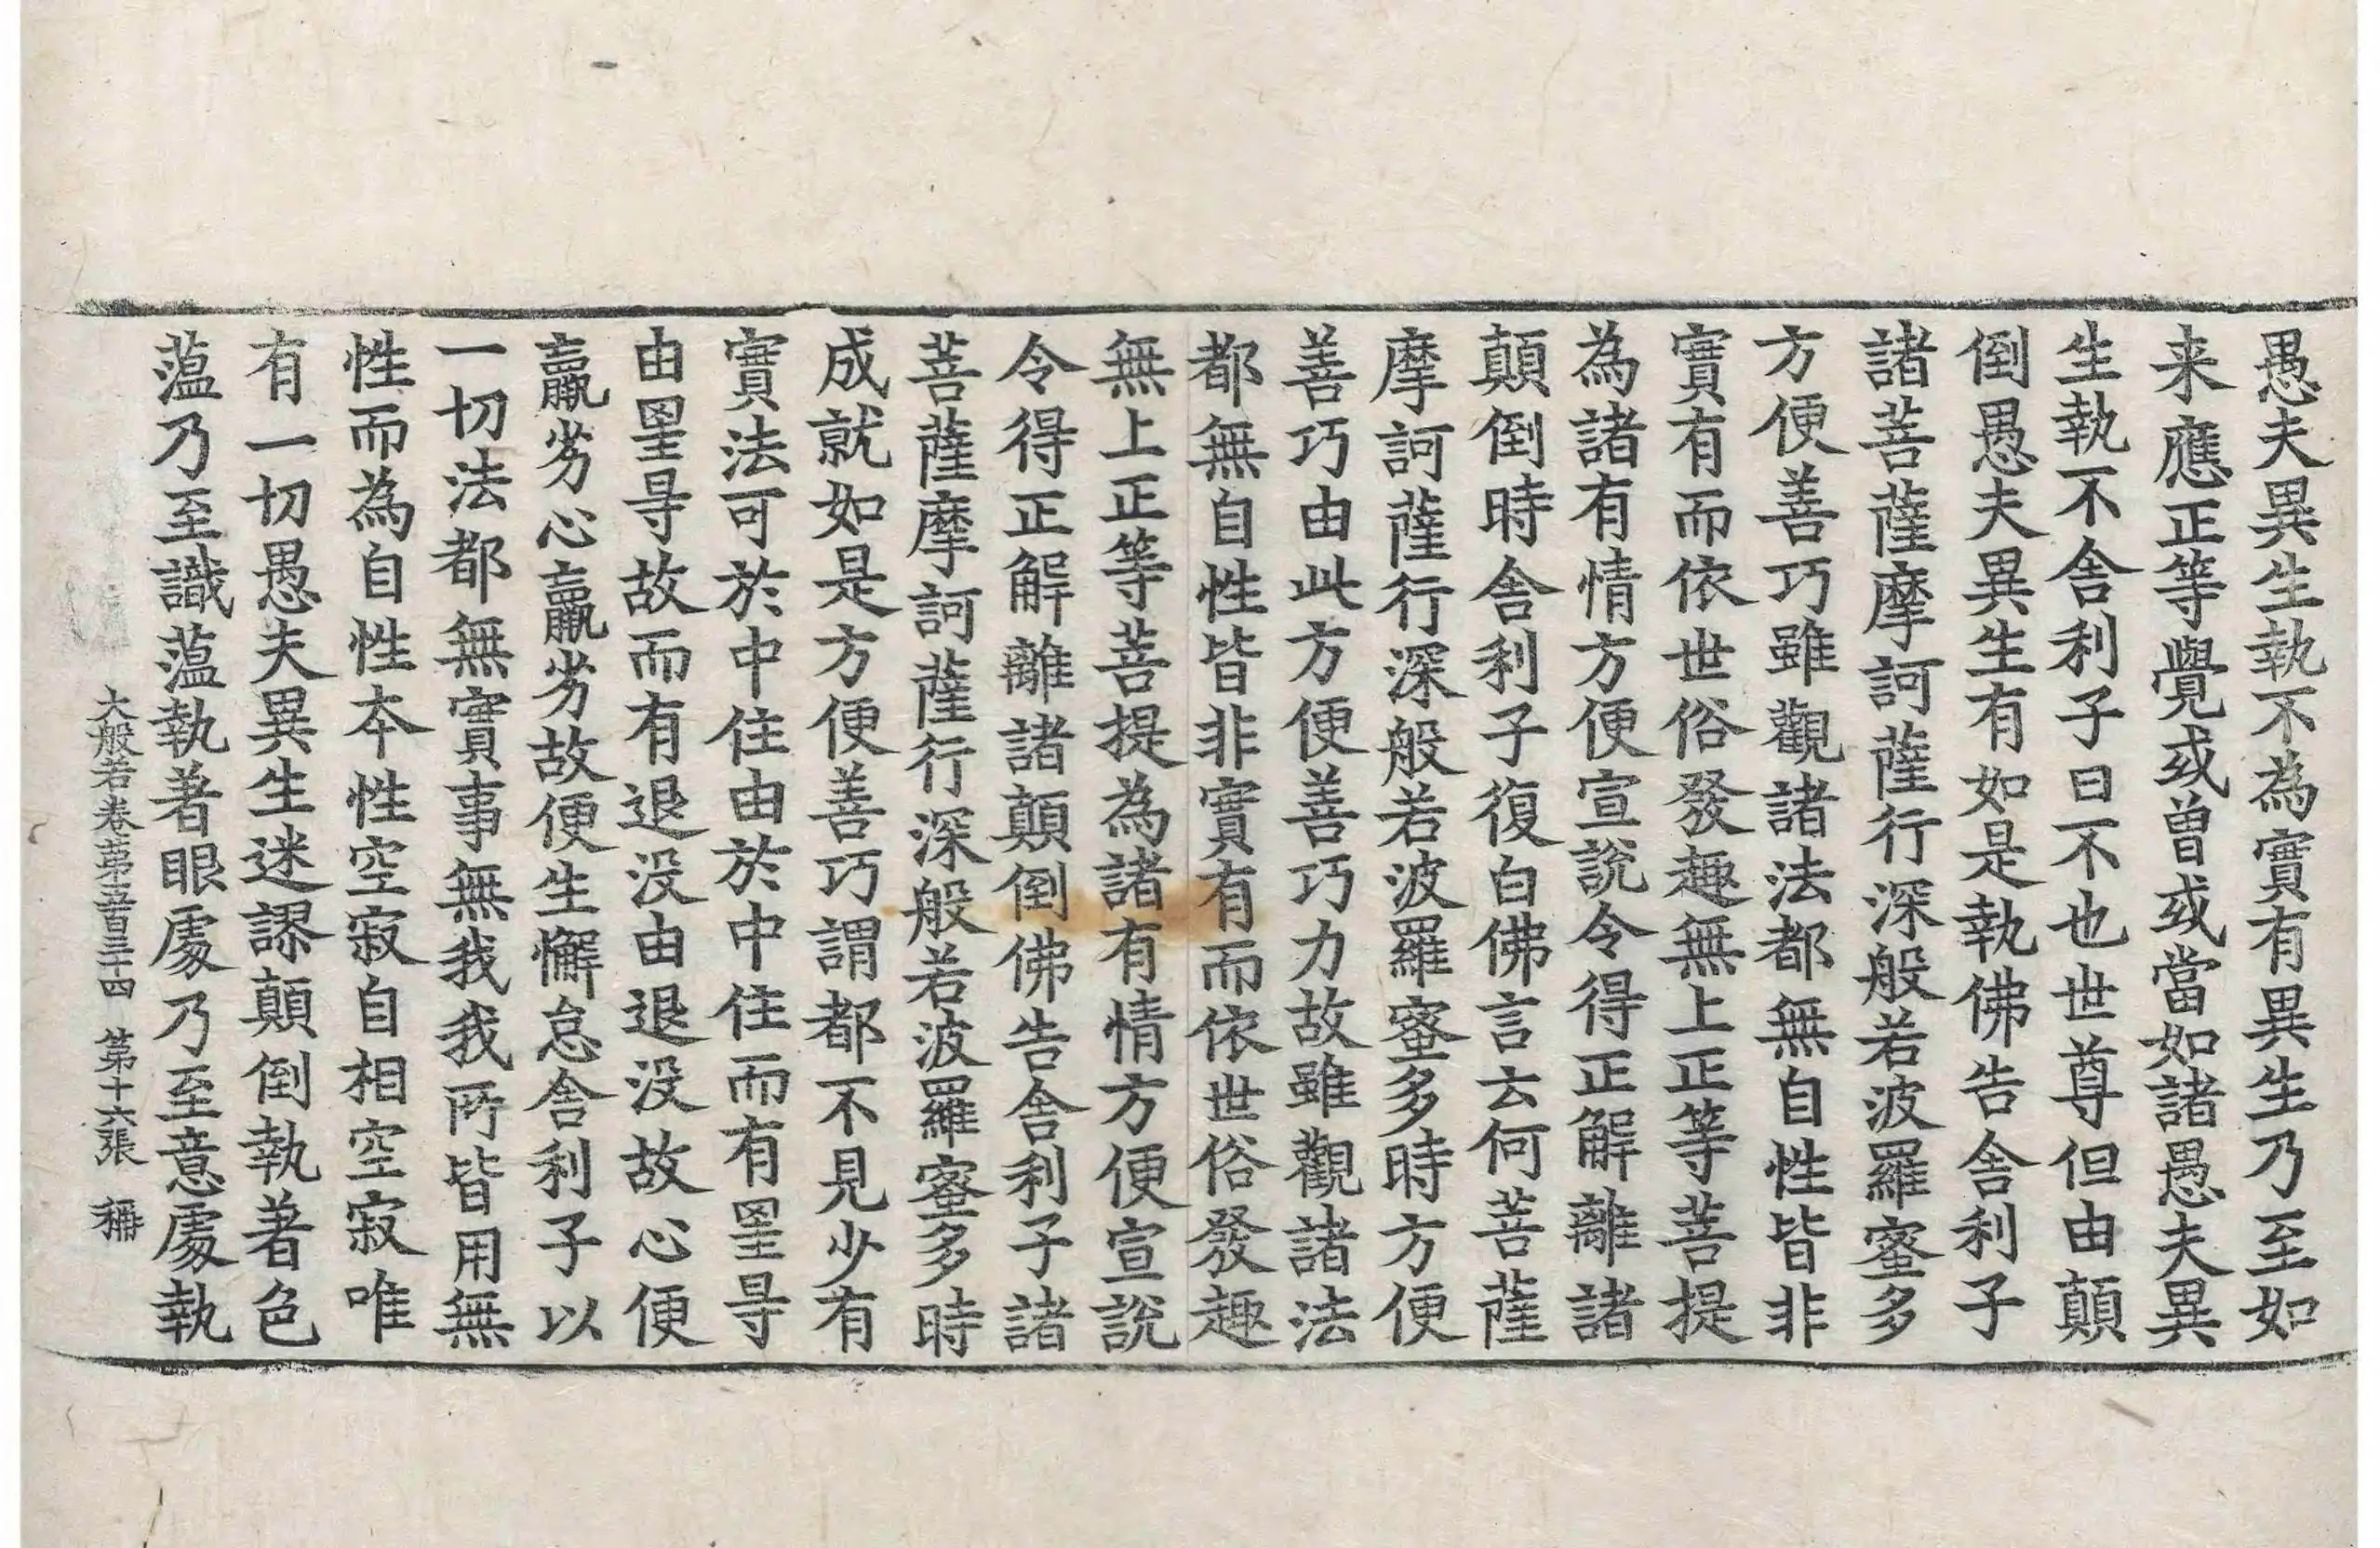 愚夫異生執不為實有異生乃至如
来應正等覺或曽或當如諸愚夫異
生執不舎利子曰不也世尊但由顛
倒愚夫異生有如是執佛告舎利子
諸菩薩摩訶薩行深般若波羅蜜多
方便善巧雖觀諸法都無自性皆非
實有而依世俗發趣無上正等菩提
為諸有情方便宣說令得正解離諸
顛倒時舎利子復白佛言云何菩薩
摩訶薩行深般若波羅蜜多時方便
善巧由此方便善巧力故雖觀諸法
都無自性皆非實有而依世俗發趣
無上正等菩提為諸有情方便宣說
令得正解離諸顛倒佛告舎利子諸
菩薩摩訶薩行深般若波羅蜜多時
成就如是方便善巧謂都不見少有
實法可於中住由於中住而有罣㝵
由罣㝵故而有退没由退没故心便
羸劣心羸劣故便生懈怠舎利子以
一切法都無實事無我我所皆用無
性而為自性本性空寂自相空寂唯
有一切愚夫異生迷謬顛倒執著色
蕰乃至識蕰執著眼處乃至意處執
大般若卷第五百三十四 第十六張 稱